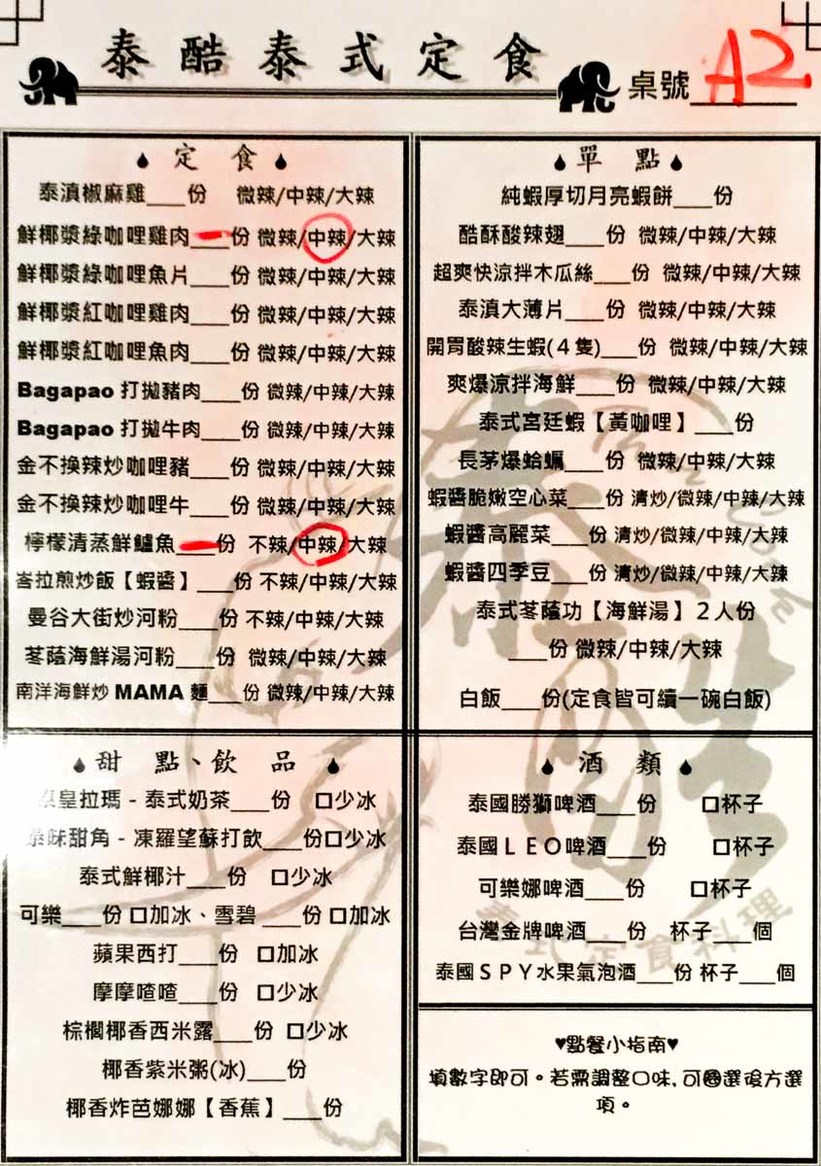 泰酷泰式定食
桌號 A2
定食
泰滇椒麻雞___份 微辣/中辣/大辣
鮮椰漿綠咖哩雞肉_一_份 微辣/中辣/大辣
鮮椰漿綠咖哩魚片___份 微辣/中辣/大辣
鮮椰漿紅咖哩雞肉___份 微辣/中辣/大辣
鮮椰漿紅咖哩魚肉___份 微辣/中辣/大辣
Bagapao 打拋豬肉___份 微辣/中辣/大辣
Bagapao 打拋牛肉___份 微辣/中辣/大辣
金不換辣炒咖哩豬___份 微辣/中辣/大辣
金不換辣炒咖哩牛___份 微辣/中辣/大辣
檸檬清蒸鮮鱸魚_一_份 不辣/中辣/大辣
峇拉煎炒飯【蝦醬】___份 不辣/中辣/大辣
曼谷大街炒河粉___份 不辣/中辣/大辣
苳蔭海鮮湯河粉___份 微辣/中辣/大辣
南洋海鮮炒 MAMA 麵___份 微辣/中辣/大辣
單點
純蝦厚切月亮蝦餅___份
酷酥酸辣翅___份 微辣/中辣/大辣
超爽快涼拌木瓜絲___份 微辣/中辣/大辣
泰滇大薄片___份 微辣/中辣/大辣
開胃酸辣生蝦(4隻)___份 微辣/中辣/大辣
爽爆涼拌海鮮___份 微辣/中辣/大辣
泰式宮廷蝦【黃咖哩】___份
長茅爆蛤蠣___份 微辣/中辣/大辣
蝦醬脆嫩空心菜___份 清炒/微辣/中辣/大辣
蝦醬高麗菜___份 清炒/微辣/中辣/大辣
蝦醬四季豆___份 清炒/微辣/中辣/大辣
泰式苳蔭功【海鮮湯】2人份
___份 微辣/中辣/大辣
白飯___份(定食皆可續一碗白飯)
甜點、飲品
皇拉瑪-泰式奶茶___份 □少冰
泰味甜角-凍羅望蘇打飲___份□少冰
泰式鮮椰汁___份 □少冰
可樂___份□加冰、雪碧 ___份□加冰
蘋果西打___份 □加冰
摩摩喳喳___份 □少冰
棕櫚椰香西米露___份 □少冰
椰香紫米粥(冰)___份
椰香炸芭娜娜【香蕉】___份
酒類
泰國勝獅啤酒___份 □杯子
泰國LEO啤酒___份 □杯子
可樂娜啤酒___份 □杯子
台灣金牌啤酒___份 杯子___個
泰國SPY水果氣泡酒___份 杯子___個
♥點餐小指南♥
填數字即可。若需調整口味,可圈選後方選
項。